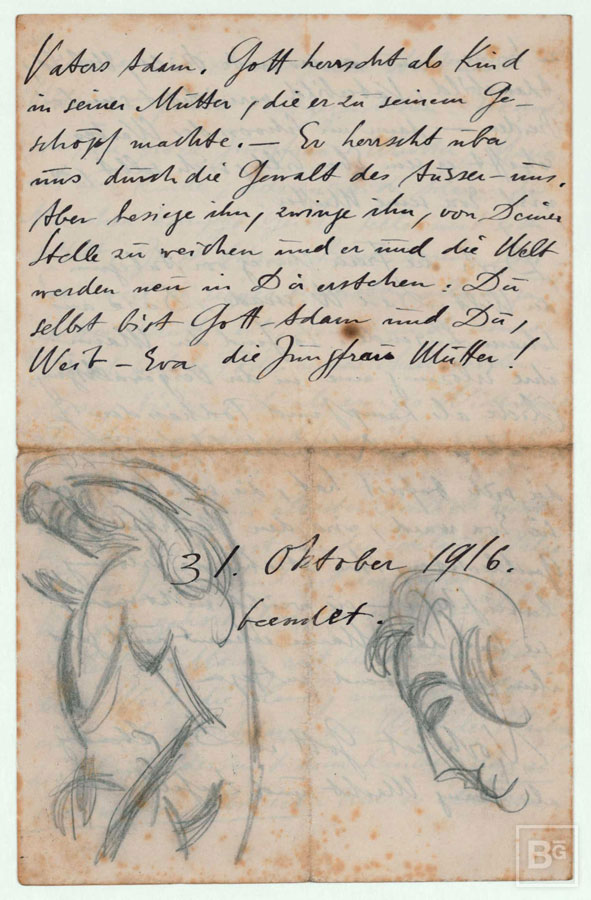 Vaters Adam. Gott herrscht als Kind
in seiner Mutter, die er zu seinem Ge-
schöpf machte. — Er herrscht über
uns durch die Gewalt des Ausser-uns.
Aber besiege ihn, zwinge ihn, von Deiner
Stelle zu weichen und er und die Welt
werden neu in Dir erstehen: Du
selbst bist Gott-Adam und Du,
Weib – Eva die Jungfrau Mutter!
31. Oktober 1916.
beendet.
BG